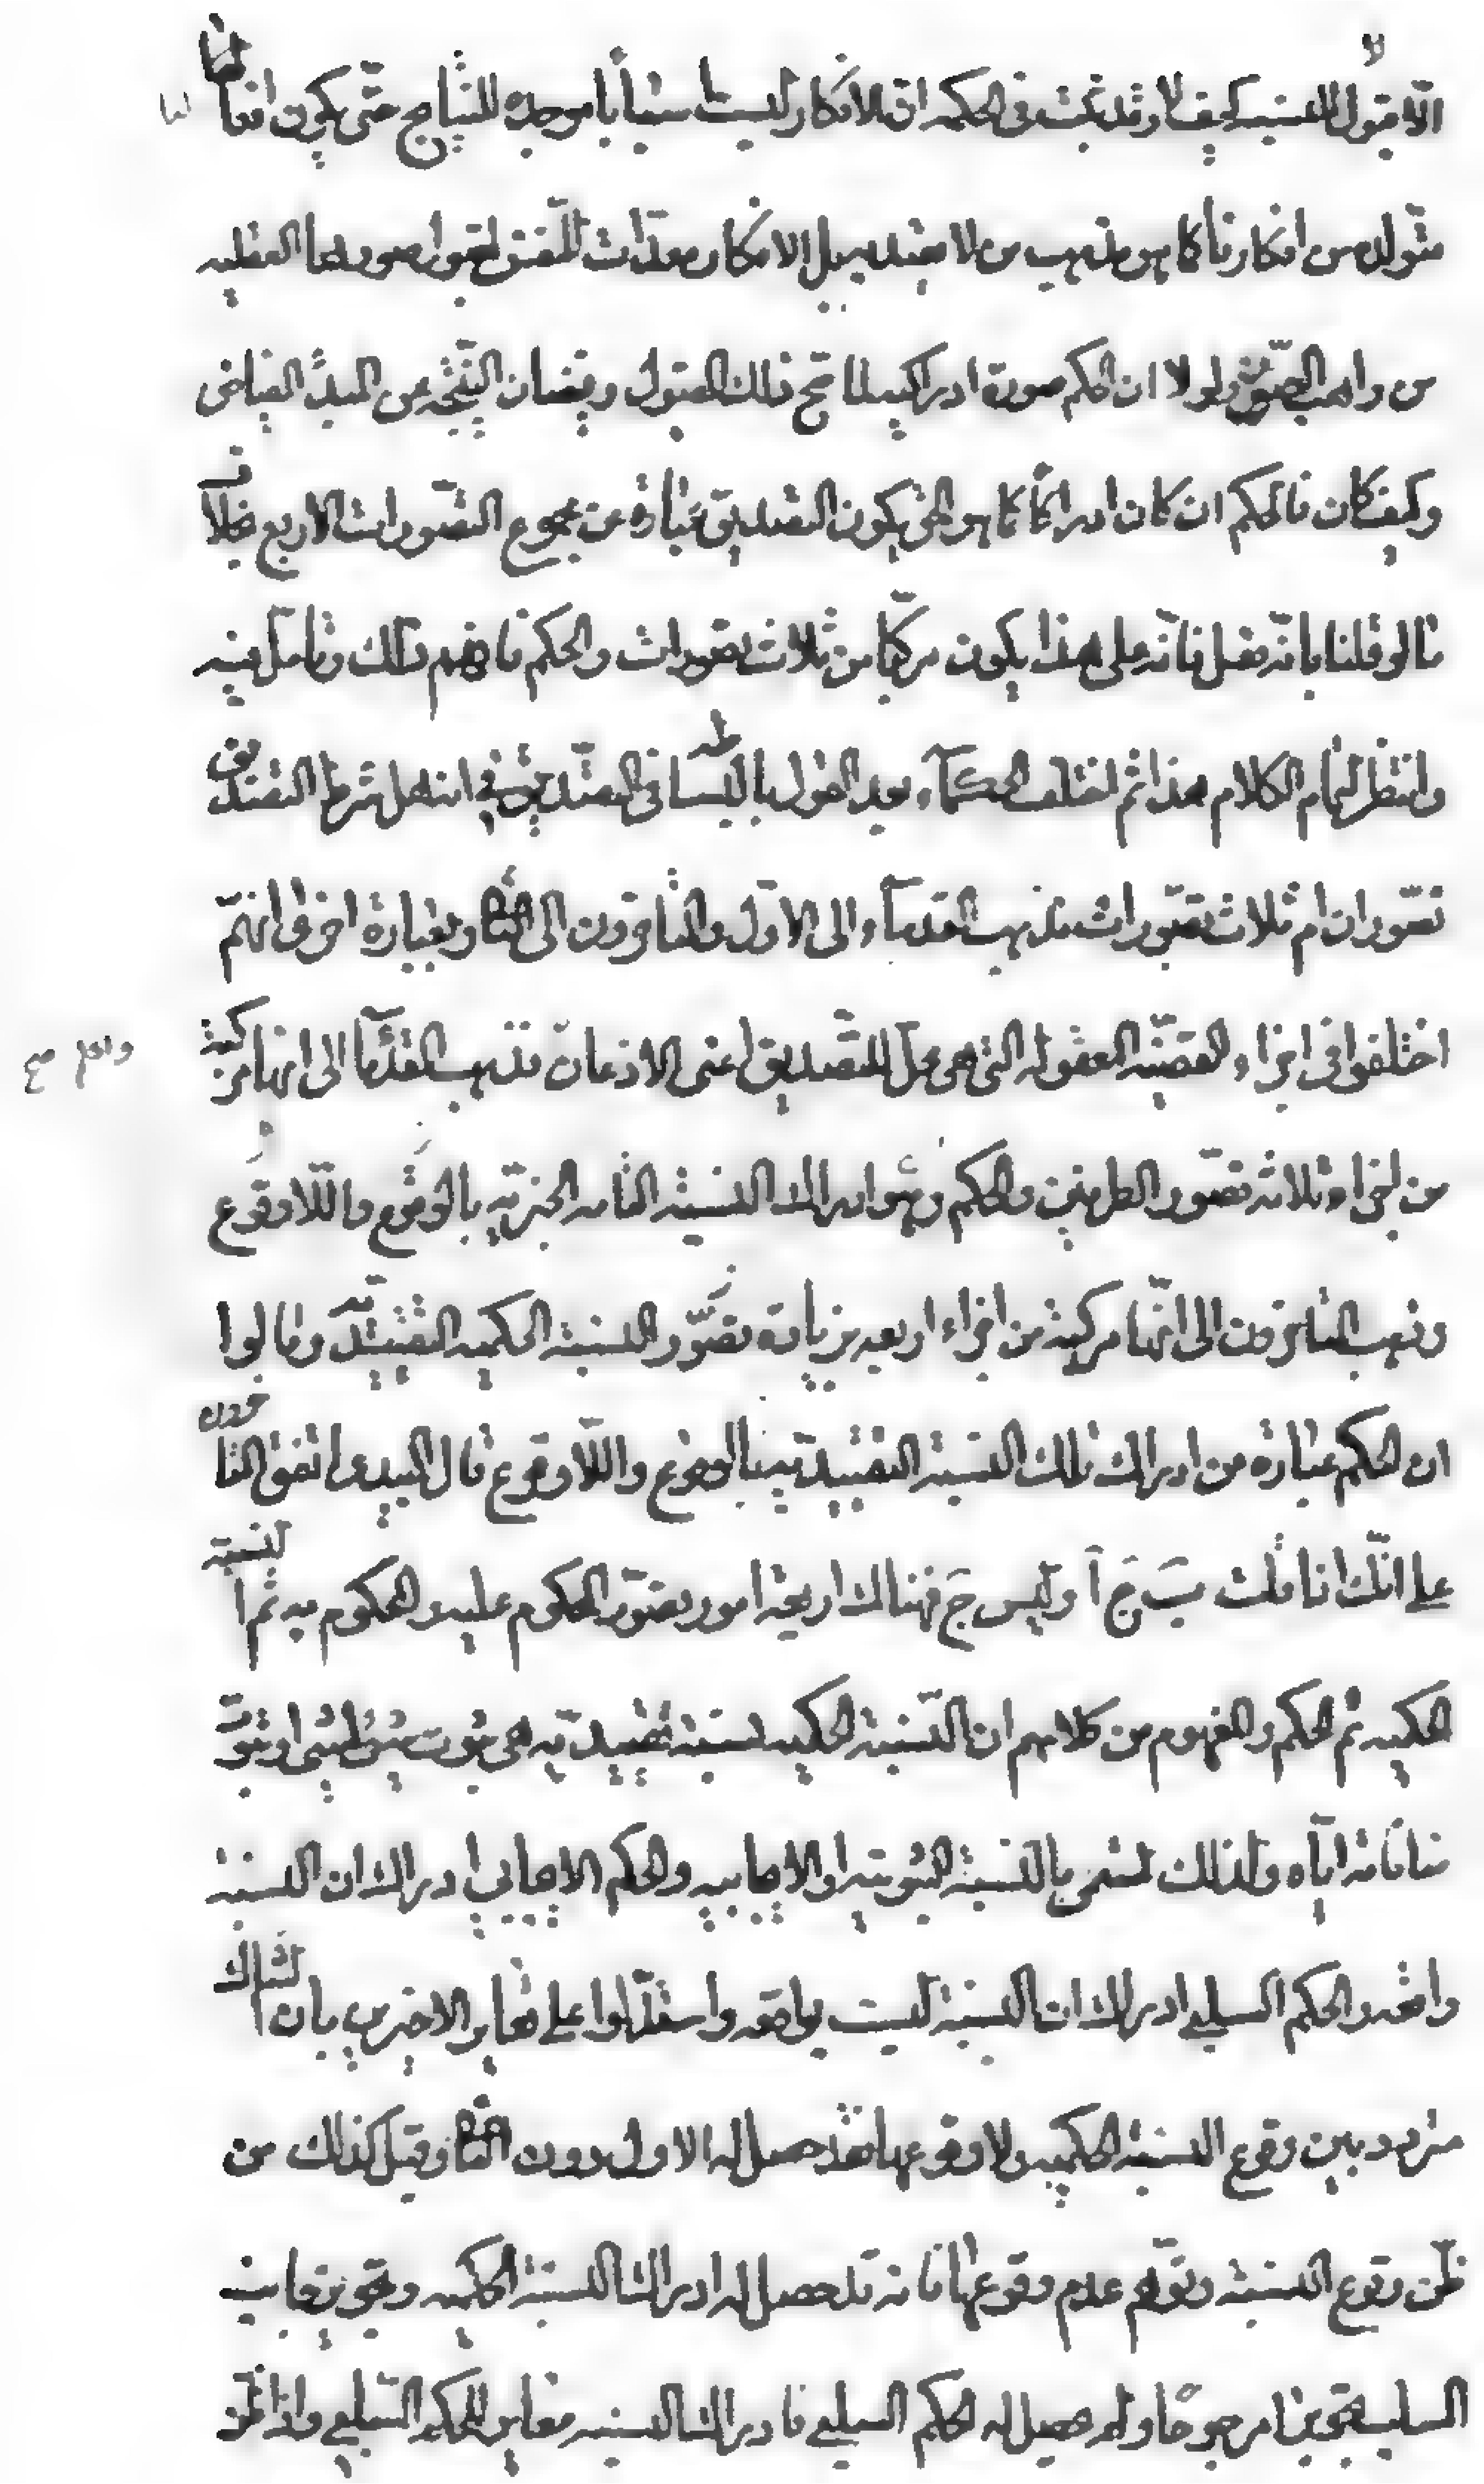 الا قبول للنسبة كيف لا وقد ثبت في الحكمة ان الافكار ليست اسبابا موجدة للنتايج حتى يكون افعالنا
متولد من افكارنا كما هو مذهب من لا يعتد به بل الافكار معدات للنفس لقبول صورها العقلية
من واهب الصور ولولا ان الحكم صورة ادراكية لما صح ذلك القبول وفيضان النتيجة عن المبدأ الفياض
وكيف كان فالحكم ان كان ادراكا كما هو الحق يكون التصديق عبارة عن مجموع التصورات الاربع بخلاف
ما لو قلنا بانه فعل فانه على هذا يكون مركبا من ثلاث تصورات والحكم فافهم ذلك وتامل فيه
وانتظر لتمام الكلام هذا ثم اختلف الحكماء بعد القول بالبساطة في التصديق في انه هل شرط التصديق
تصوران ام ثلاث تصورات فذهب القدماء الى الاول والمتاخرون الى الثاني وبعبارة اخرى انهم
اختلفوا في اجزاء القضية المعقولة التي هي محل للتصديق اعني الاذعان فذهب القدماء الى انها مركبة
من اجزاء ثلاثة تصور الطرفين والحكم وهو ادراك النسبة التامة الخبرية بالوقوع واللاوقوع
وذهب المتاخرون الى انها مركبة من اجزاء اربعة بزيادة تصور النسبة الحكمية التقييدية وقالوا
ان الحكم عبارة من ادراك تلك النسبة التقييدية بالوقوع واللاوقوع قال الميبدي اتفق المتاخرون
على انك اذا قلت ب ج أ وليس ج فهناك اربعة امور تصور المحكوم عليه والمحكوم به ثم النسبة
الحكمية ثم الحكم والمفهوم من كلامهم ان النسبة الحكمية نسبة تقييدية هي ثبوت شئ لشئ او ثبوت
منافاته اياه ولذلك تسمى بالنسبة الثبوتية والايجابية والحكم الايجابي ادراك ان النسبة
واقعة والحكم السلبي ادراك ان النسبة ليست بواقعة واستدلوا على تغاير الاخيرين بان الشاك
متردد بين وقوع النسبة الحكمية ولا وقوعها فقد حصل له الاول دون الثاني وقيل كذلك من
ظن وقوع النسبة وتوهم عدم وقوعها فانه قد حصل له ادراك النسبة الحكمية وتجويز جانب
السلب تجويزا مرجوحا ولم يحصل له الحكم السلبي فادراك النسبة مغاير للحكم السلبي واذا ظن